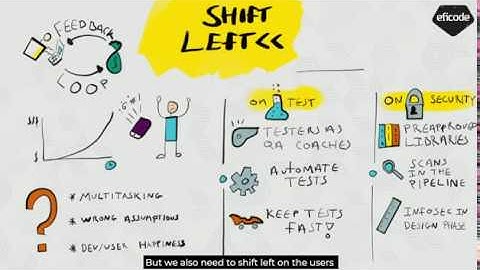 FEEDBACK
LOOP
SHIFT
LEFT<<
eficode
$$$
$
* MULTITASKING
* WRONG ASSUMPTIONS
* DEV/USER HAPPINESS
ON TEST
TESTERS AS
QA COACHES
AUTOMATE
TESTS
KEEP TESTS
FAST!
ON SECURITY
PREAPPROVED
LIBRARIES
SCANS
IN THE
PIPELINE
INFOSEC IN
DESIGN PHASE
But we also need to shift left on the users